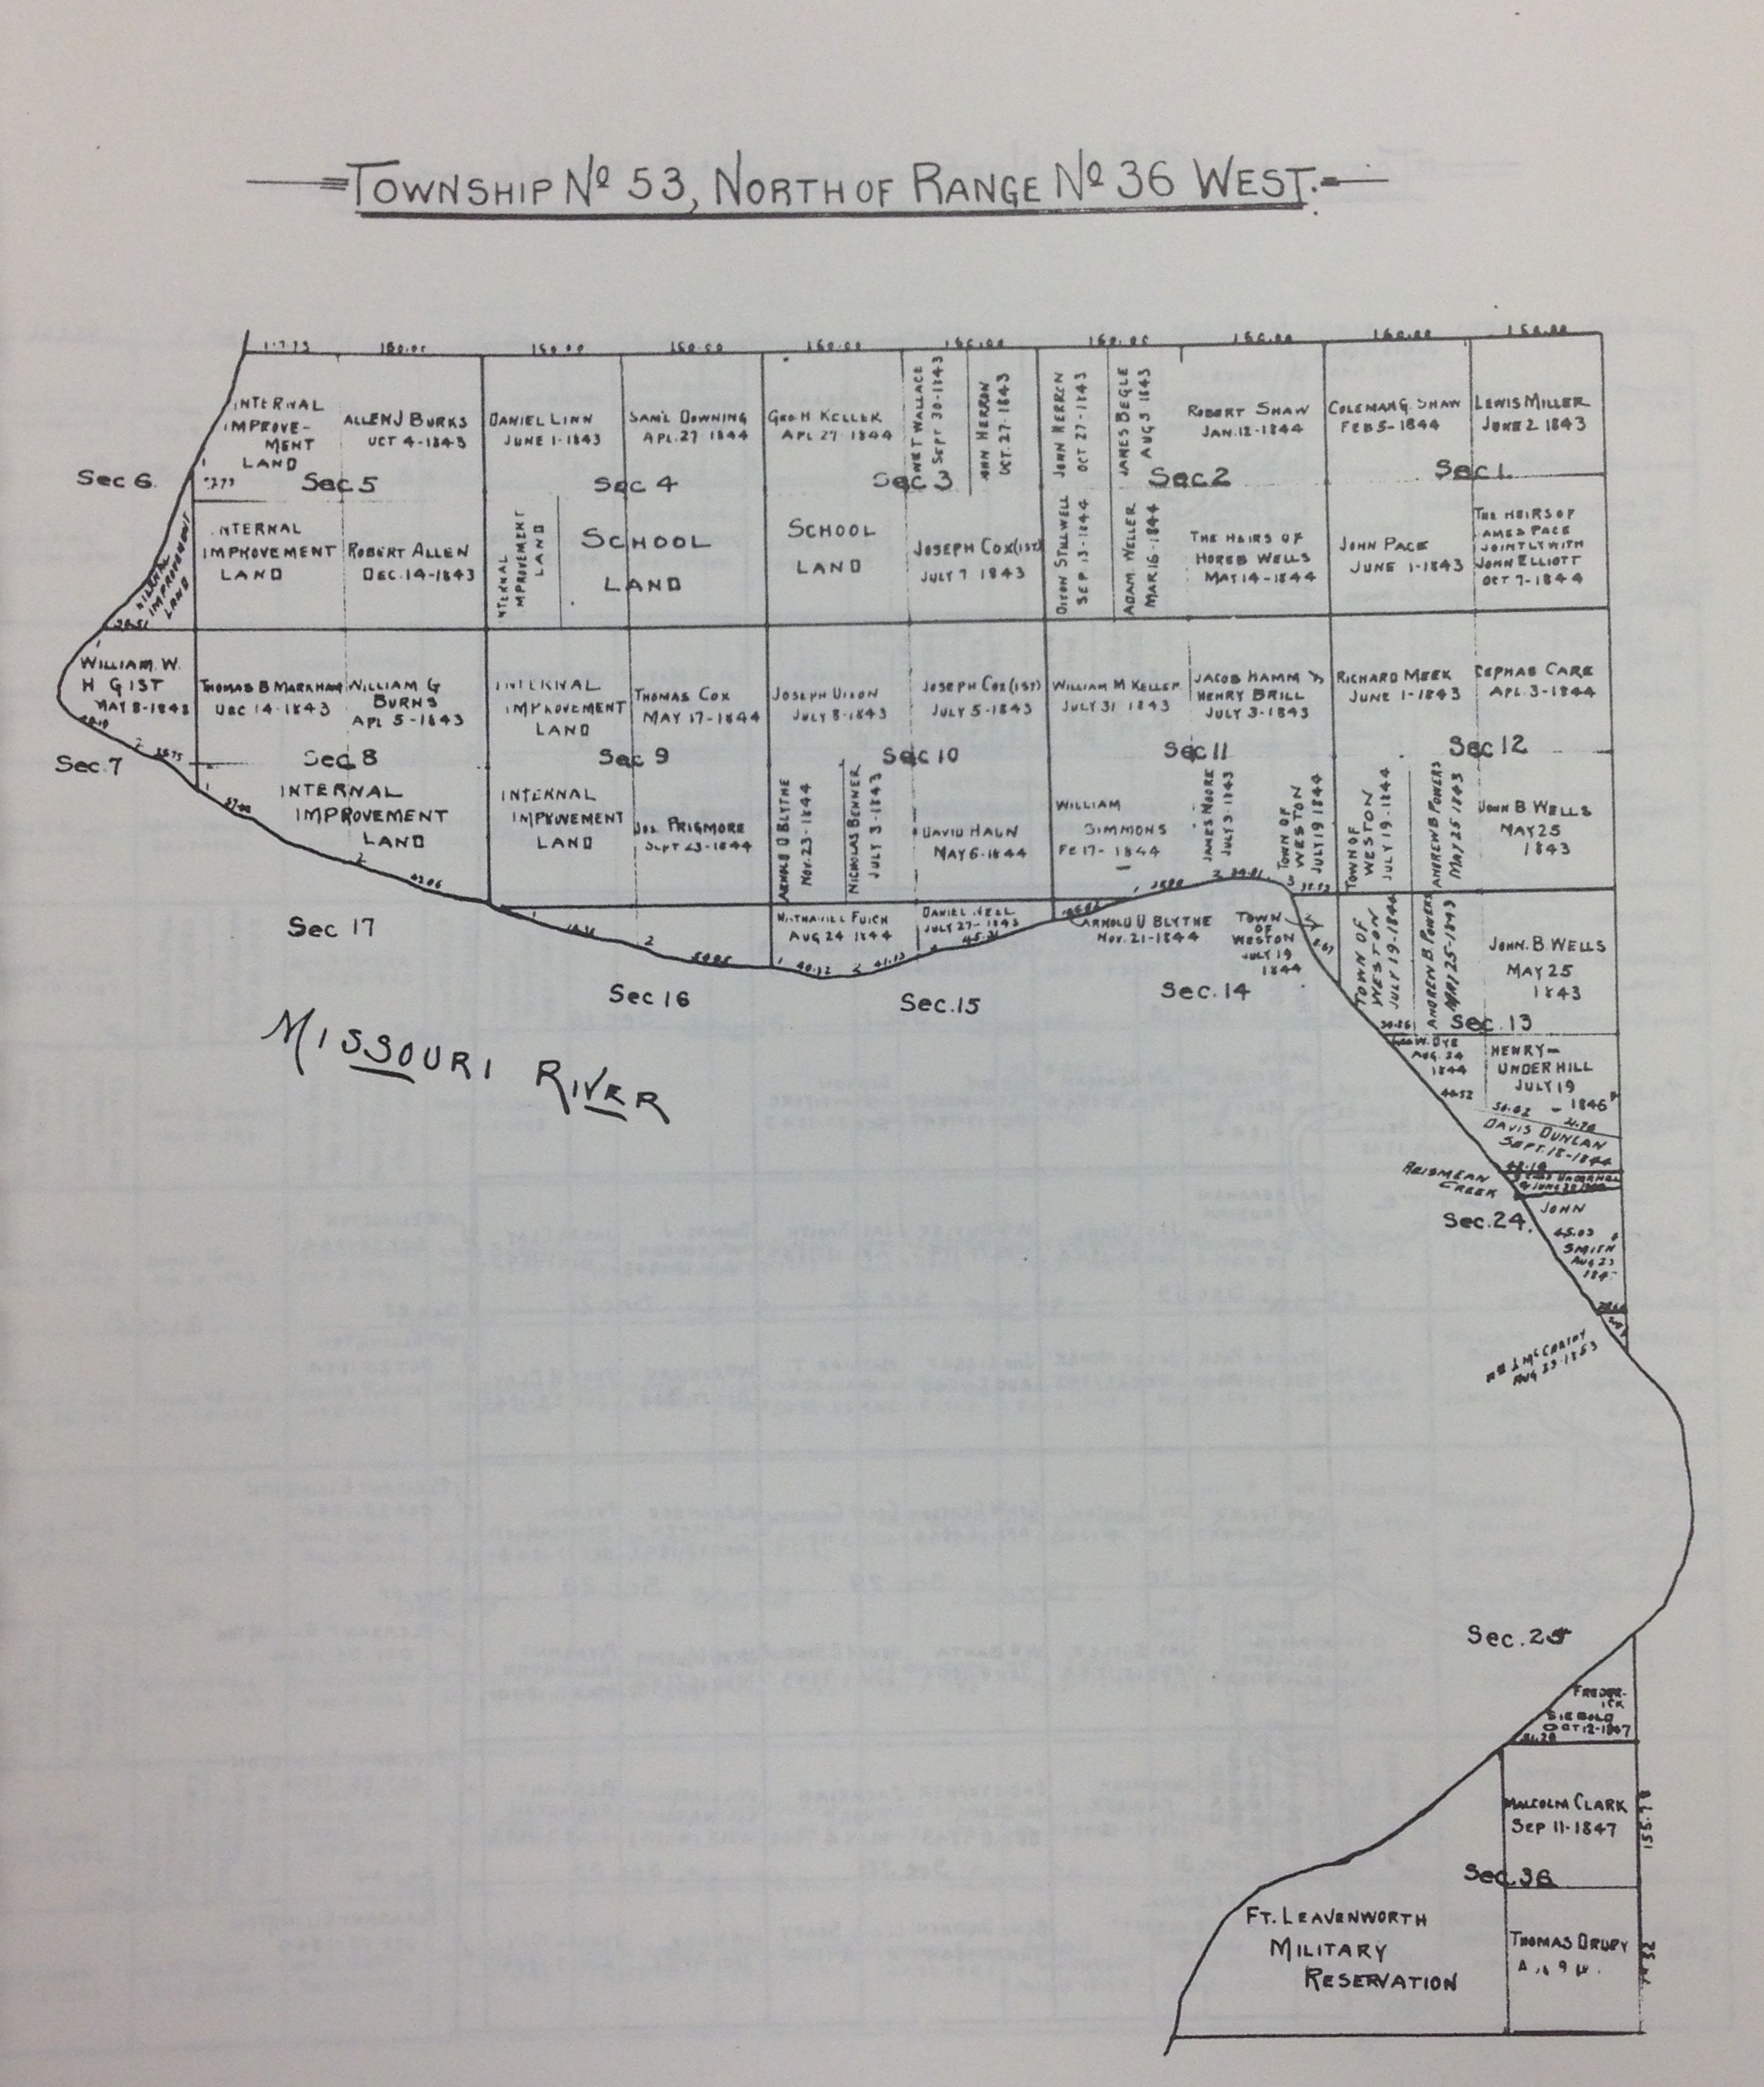 TOWNSHIP Nº 53, NORTH OF RANGE Nº 36 WEST.
160.00
160.00
160.00
160.00
INTERNAL
IMPROVE-
MENT
LAND
ALLEN J BURKS
OCT 4-1843
DANIEL LINN
JUNE 1-1843
SAM'L DOWNING
APL. 27 1844
GEO H KELLER
APL 27-1844
WALLACE
SEPT 30-1843
HERRON
OCT. 27-1843
JOHN HERREN
OCT 27-1843
JAMES BEGLE
AUG 5 1843
ROBERT SHAW
JAN. 12-1844
COLEMAN G. SHAW
FEB 5-1844
LEWIS MILLER
JUNE 2 1843
Sec 6.
Sec 5
Sec 4
Sec 3
Sec 2
Sec 1.
INTERNAL
IMPROVEMENT
LAND
INTERNAL
IMPROVEMENT
LAND
ROBERT ALLEN
DEC. 14-1843
INTERNAL
IMPROVEMENT
LAND
SCHOOL
LAND
SCHOOL
LAND
JOSEPH COX (1ST)
JULY 7 1843
DIXON STILLWELL
SEP 13-1844
ADAM WELLER
MAR 16-1844
THE HAIRS OF
HOREB WELLS
MAY 14-1844
JOHN PACE
JUNE 1-1843
THE HEIRS OF
JAMES PACE
JOINTLY WITH
JOHN ELLIOTT
OCT 7-1844
WILLIAM. W.
H GIST
MAY 8-1843
THOMAS B MARKHAM
DEC 14-1843
WILLIAM G
BURNS
APL 5-1843
INTERNAL
IMPROVEMENT
LAND
THOMAS COX
MAY 17-1844
JOSEPH DIXON
JULY 8-1843
JOSEPH COX (1ST)
JULY 5-1843
WILLIAM M KELLER
JULY 31 1843
JACOB HAMM &
HENRY BRILL
JULY 3-1843
RICHARD MEEK
JUNE 1-1843
CEPHAS CARE
APL. 3-1844
Sec. 7
Sec 8
Sec 9
Sec 10
Sec 11
Sec 12
INTERNAL
IMPROVEMENT
LAND
INTERNAL
IMPROVEMENT
LAND
JOS. PRIGMORE
SEPT 23-1844
ARNOLD D BLYTHE
NOV. 23-1844
NICHOLAS BENNER
JULY 3-1843
DAVID HAUN
MAY 6-1844
WILLIAM
SIMMONS
FE 17-1844
JAMES MOORE
JULY 3-1843
TOWN OF
WESTON
JULY 19 1844
TOWN OF
WESTON
JULY 19-1844
ANDREW B. POWERS
MAY 25 1843
JOHN B WELLS
MAY 25
1843
Sec 17
AUG 24 1844
DANIEL
JULY 27-1843
ARNOLD D BLYTHE
NOV. 21-1844
TOWN
OF
WESTON
JULY 19
1844
TOWN OF
WESTON
JULY 19-1844
ANDREW B. POWERS
MAY 25-1843
JOHN. B. WELLS
MAY 25
1843
Sec 16
Sec. 15
Sec. 14
Sec. 13
MISSOURI RIVER
W. DYE
AUG. 24
1844
HENRY-
UNDERHILL
JULY 19
1846
44.52
DAVIS DUNCAN
SEPT. 18-1844
CREEK
Sec. 24.
JOHN
45.03
SMITH
AUG 23
J MCCARTHY
AUG 23-1853
Sec. 25
FREDER-
ICK
SIEBOLD
OCT 12-1847
MALCOLM CLARK
SEP 11-1847
155.78
Sec. 36
FT. LEAVENWORTH
MILITARY
RESERVATION
THOMAS DRURY